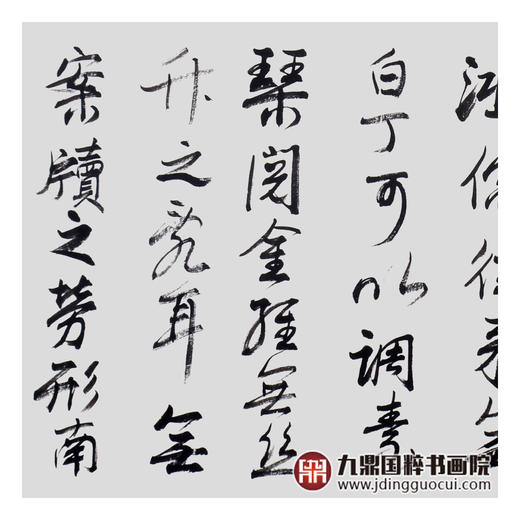 鸿儒往来无
白丁可以调素
琴阅金经无丝
竹之乱耳无
案牍之劳形南
九鼎国粹书画院
www.jdingguocui.com